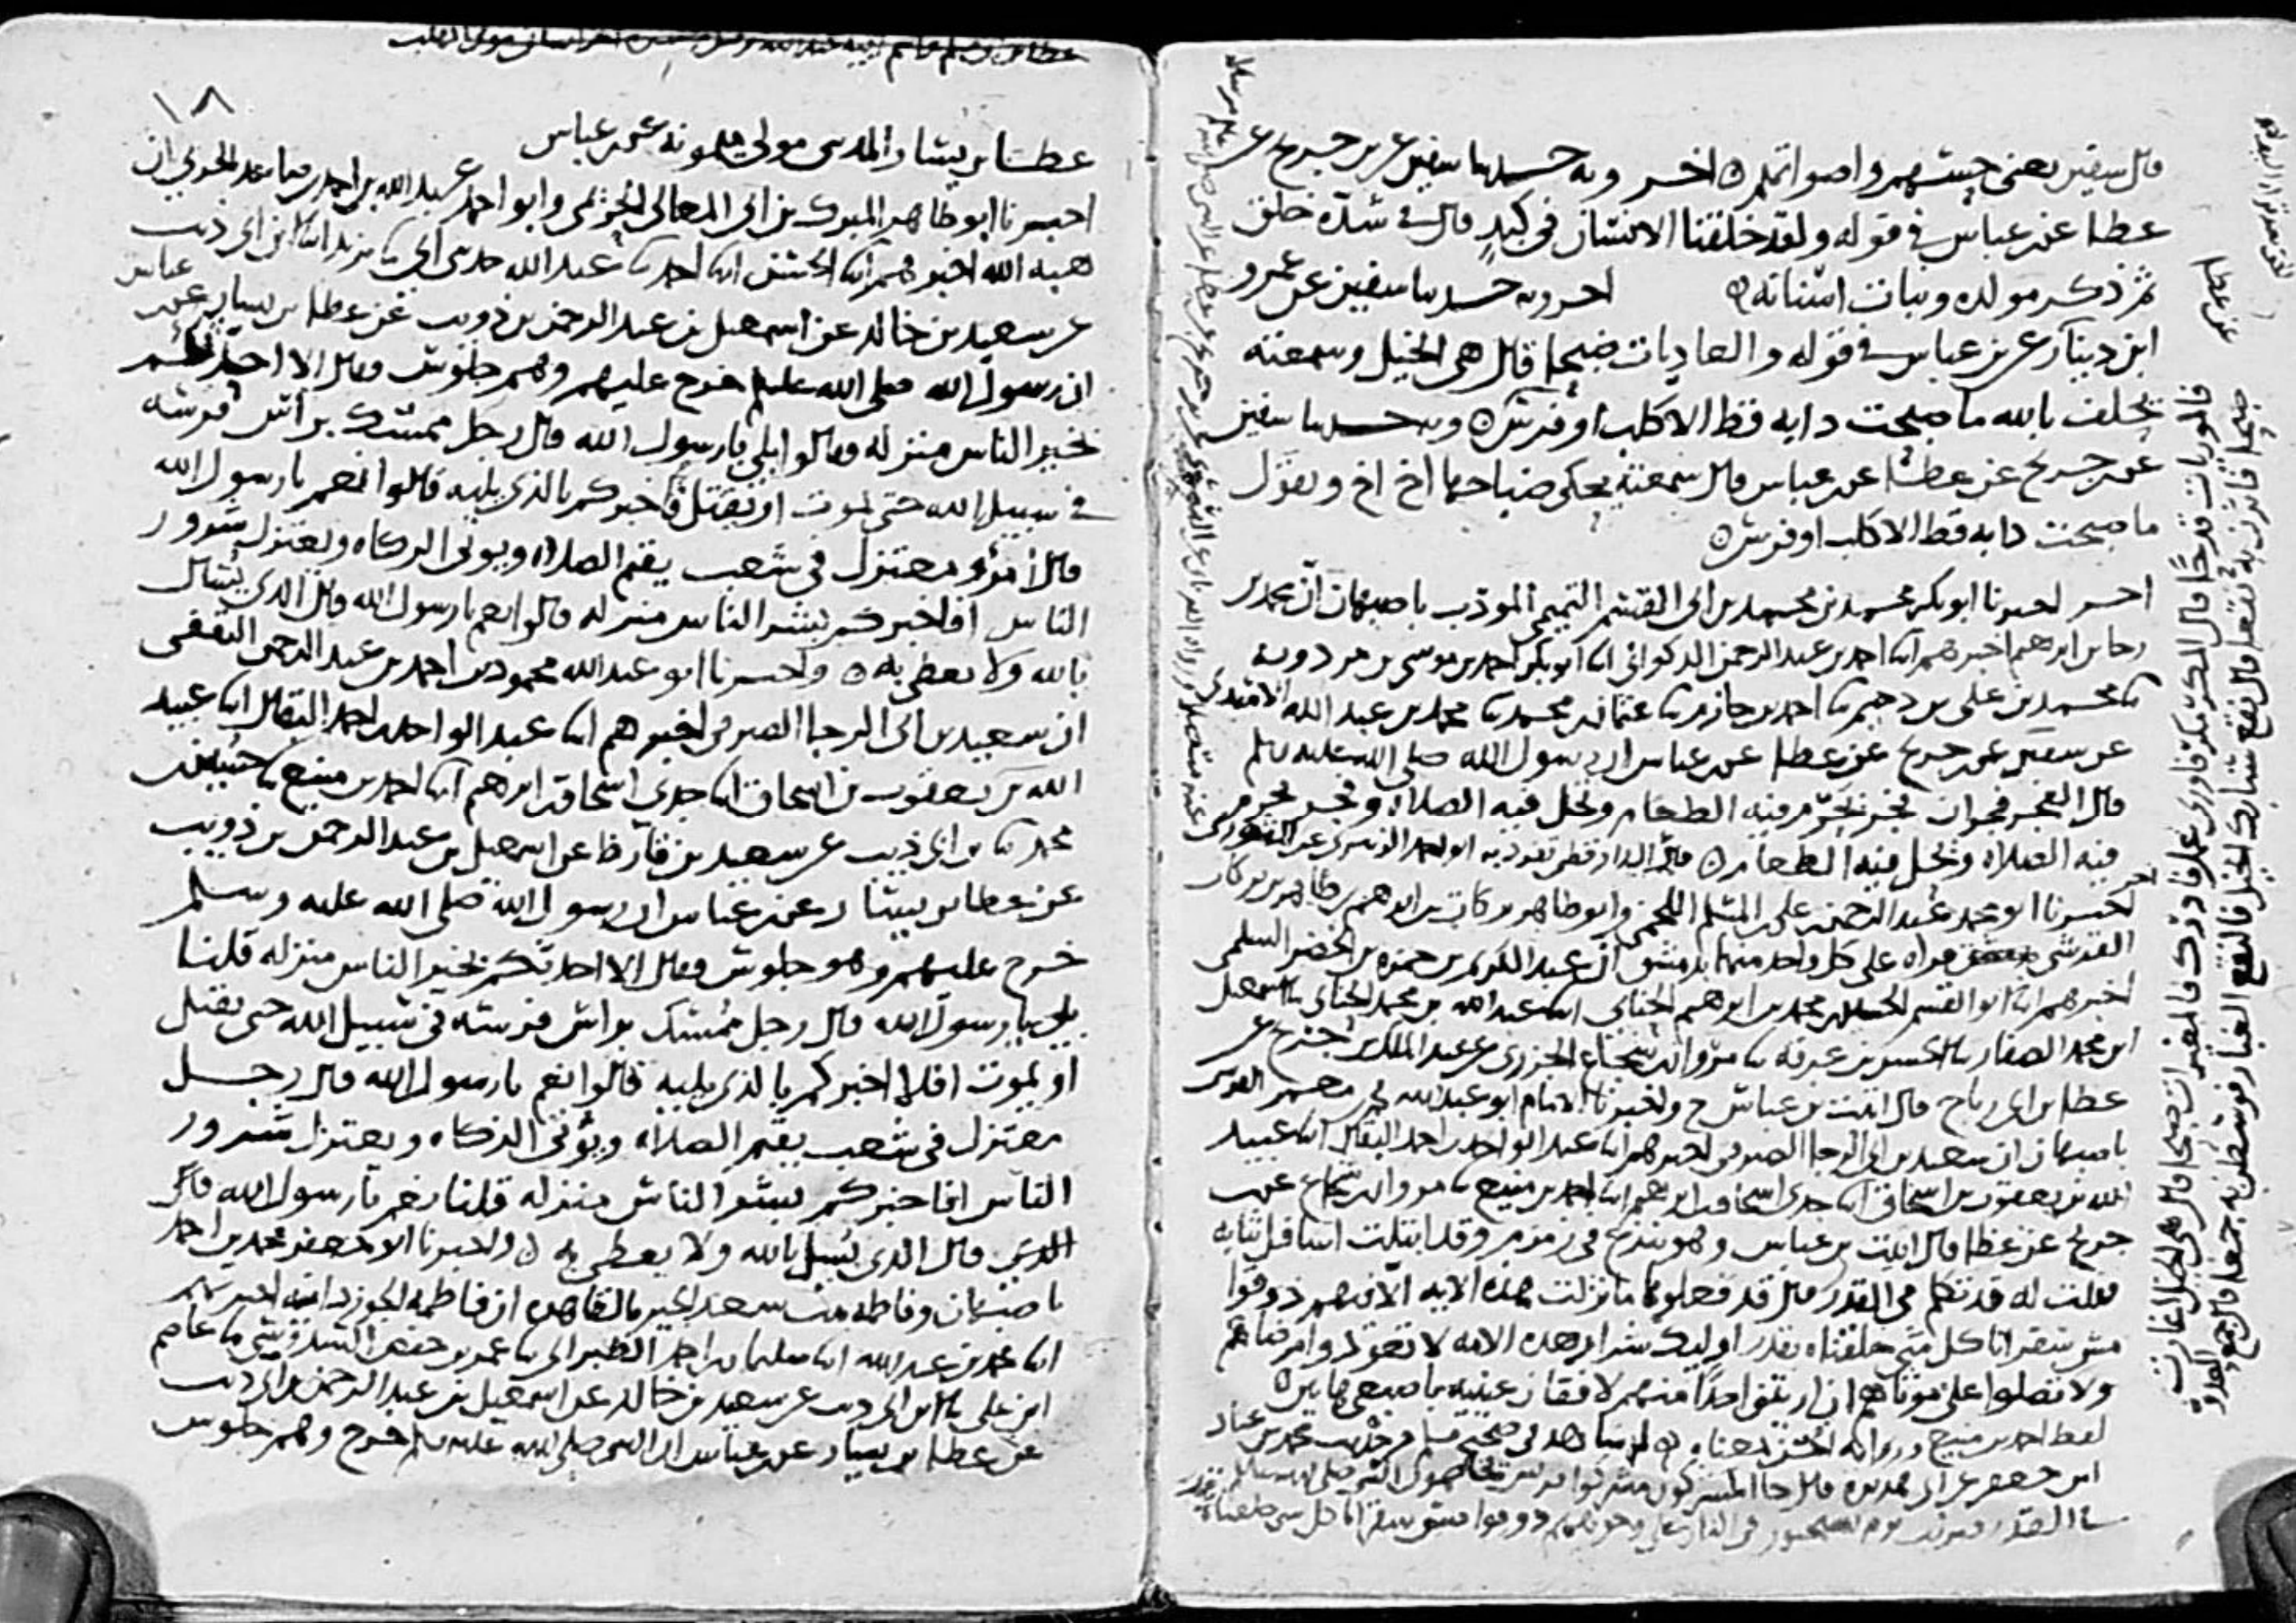 قال سفين يعني حسهم واصواتهم ه اخر وبه حدثنا سفين عن بن جريج عن
عطا عن بن عباس في قوله ولقد خلقنا الانسان في كبد قال في شدة خلق
ثم ذكر مولده ونبات اسنانه ه اخر وبه حدثنا سفين عن عمرو
ابن دينار عن بن عباس في قوله والعاديات ضبحا قال هي الخيل وسمعته
يحلف بالله ما ضبحت دابه قط الا كلب او فرس ه وبه حدثنا سفين
عن بن جريج عن عطا عن بن عباس قال سمعته يحكي ضباحها اخ اخ ويقول
ما ضبحت دابه قط الا كلب او فرس ه
اخر اخبرنا ابو بكر محمد بن محمد بن ابي القسم التميمي المودب باصبهان ان محمد بن
رجا بن ابرهيم اخبرهم انا احمد بن عبد الرحمن الذكواني انا ابو بكر احمد بن موسى بن مردويه
نا محمد بن علي بن دحيم نا احمد بن حازم نا عثمان بن محمد نا محمد بن عبد الله الاسدي
عن سفين عن بن جريج عن عطا عن بن عباس ان رسول الله صلى الله عليه وسلم
قال الفجر فجران فجر يحرم فيه الطعام وتحل فيه الصلاه وفجر تحرم
فيه الصلاه ويحل فيه الطعام ه قال الدارقطني تفرد به ابو احمد الزبيري عن الثوري
اخبرنا ابو محمد عبد الرحمن بن علي بن المسلم اللخمي وابو طاهر بركات بن ابرهيم بن طاهر بن بركات
القرشي قراه على كل واحد منهما بدمشق ان عبد الكريم بن حمزه بن الخضر السلمي
اخبرهم انا ابو القسم الحسين بن محمد بن ابرهيم الحنائي انا عبد الله بن محمد الحنائي نا اسمعيل
ابن محمد الصفار نا الحسن بن عرفه نا مروان بن شجاع الجزري عن عبد الملك بن جريج عن
عطا بن ابي رباح قال اتيت بن عباس ح واخبرنا الامام ابو عبد الله بن معمر القرشي
باصبهان ان سعيد بن ابي الرجا الصيرفي اخبرهم انا عبد الواحد بن احمد البقال انا عبيد
الله بن يعقوب بن اسحاق انا جدي اسحاق بن ابرهيم انا احمد بن منيع نا مروان بن شجاع عن بن
جريج عن عطا قال اتيت بن عباس وهو ينزح في زمزم وقد ابتلت اسافل ثيابه
فقلت له قد تكلم في القدر قال قد فعلوها ما نزلت هذه الايه الا فيهم ذوقوا
مس سقر انا كل شي خلقناه بقدر اوليك شرار هذه الامه لا تعودوا مرضاهم
ولا تصلوا على موتاهم ان اريتني احدا منهم لافقان عينيه باصبعي هاتين ه
لفظ احمد بن منيع ورواية الحسن بمعناه ه له شاهد في صحيح مسلم من حديث محمد بن عباد
ابن جعفر عن ابي هريره قال جا المشركون مشركوا قريش يخاصمون النبي صلى الله عليه وسلم
في القدر فنزلت يوم يسحبون في النار على وجوههم ذوقوا مس سقر انا كل شي خلقناه بقدر
فالموريات قدحا قال المكر
ضبحا قال هي الخيل
١٨
عطا بن يسار المدني مولى ميمونه عن بن عباس
اخبرنا ابو طاهر المبرك بن ابي المعالي الحريمي وابو احمد عبد الله بن احمد الحربي ان
هبه الله اخبرهم انا الحسن انا احمد نا عبد الله حدثني ابي نا يزيد انا ابن ابي ذيب
عن سعيد بن خالد عن اسمعيل بن عبد الرحمن بن ذويب عن عطا بن يسار عن بن عباس
ان رسول الله صلى الله عليه وسلم خرج عليهم وهم جلوس فقال الا احدثكم
بخير الناس منزله فقالوا بلى يا رسول الله قال رجل ممسك براس فرسه
في سبيل الله حتى يموت او يقتل فاخبركم بالذي يليه قالوا نعم يا رسول الله
قال امرؤ معتزل في شعب يقيم الصلاه ويوتي الزكاه ويعتزل شرور
الناس افاخبركم بشر الناس منزله قالوا نعم يا رسول الله قال الذي يسال
بالله ولا يعطي به ه واخبرنا ابو عبد الله محمود بن احمد بن عبد الرحمن الثقفي
ان سعيد بن ابي الرجا الصيرفي اخبرهم انا عبد الواحد بن احمد البقال انا عبيد
الله بن يعقوب بن اسحاق انا جدي اسحاق بن ابرهيم انا احمد بن منيع نا حسين بن
محمد نا بن ابي ذيب عن سعيد بن قارظ عن اسمعيل بن عبد الرحمن بن ذويب
عن عطا بن يسار عن بن عباس ان رسول الله صلى الله عليه وسلم
خرج عليهم وهو جلوس فقال الا احدثكم بخير الناس منزله قلنا
بلى يا رسول الله قال رجل ممسك براس فرسه في سبيل الله حتى يقتل
او يموت افلا اخبركم بالذي يليه قالوا نعم يا رسول الله قال رجل
معتزل في شعب يقيم الصلاه ويؤتي الزكاه ويعتزل شرور
الناس افاخبركم بشر الناس منزله قلنا نعم يا رسول الله قال
الذي قال الذي يسل بالله ولا يعطي به ه واخبرنا ابو جعفر محمد بن احمد
باصبهان وفاطمه بنت سعد الخير بالقاهره ان فاطمه الجوزدانيه اخبرتهم
انا محمد بن عبد الله انا سليمان بن احمد الطبراني نا عمر بن حفص السدوسي نا عاصم
ابن علي نا بن ابي ذيب عن سعيد بن خالد عن اسمعيل بن عبد الرحمن بن ابي ذيب
عن عطا بن يسار عن بن عباس ان النبي صلى الله عليه وسلم خرج وهم جلوس